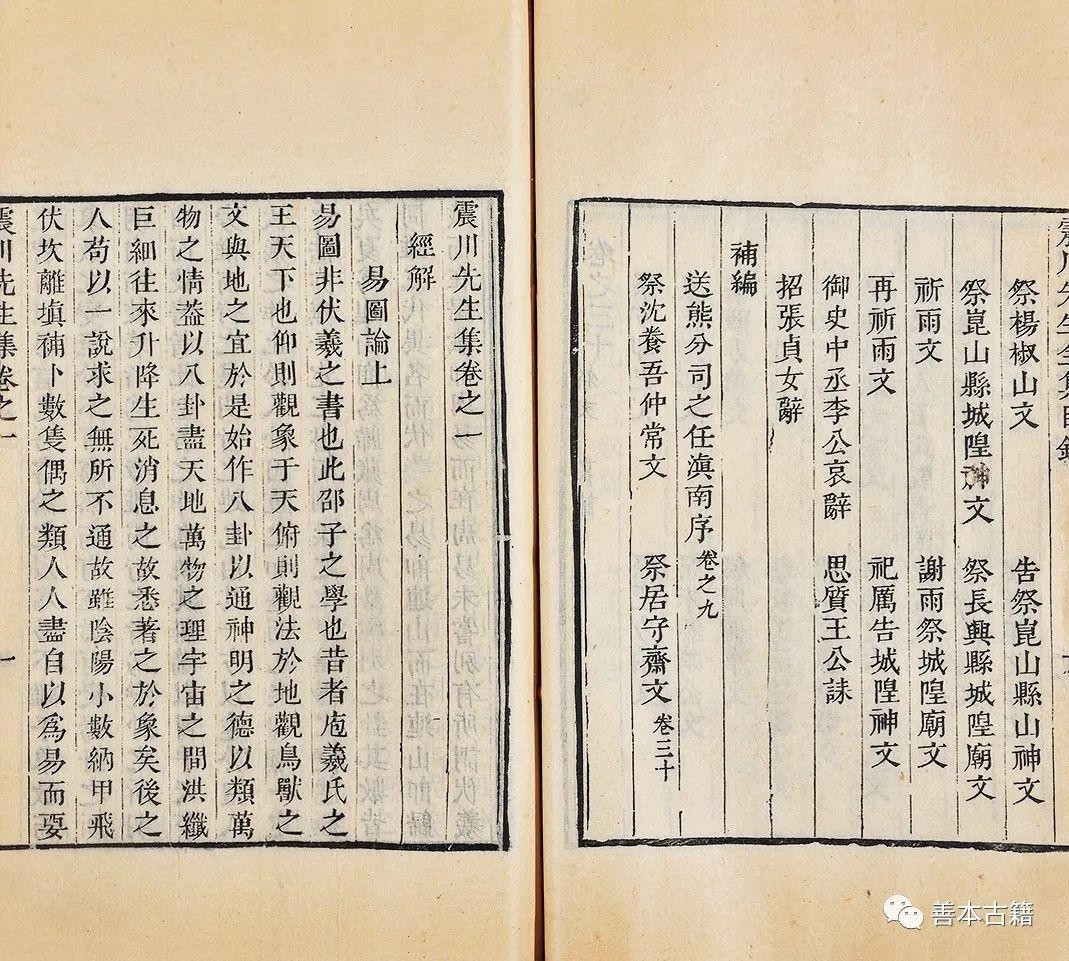 震川先生全集目錄
祭楊椒山文 告祭崑山縣山神文
祭崑山縣城隍神文 祭長興縣城隍廟文
祈雨文 謝雨祭城隍廟文
再祈雨文 祀厲告城隍神文
御史中丞李公哀辭 思質王公誄
招張貞女辭
補編
送熊分司之任滇南序 卷之九
祭沈養吾仲常文 祭居守齋文 卷三十
震川先生集卷之一
經解
易圖論上
易圖非伏羲之書也此邵子之學也昔者庖羲氏之
王天下也仰則觀象于天俯則觀法於地觀鳥獸之
文與地之宜於是始作八卦以通神明之德以類萬
物之情蓋以八卦盡天地萬物之理宇宙之間洪纖
巨細往來升降生死消息之故悉著之於象矣後之
人苟以一說求之無所不通故雖陰陽小數納甲飛
伏坎離填補卜數隻偶之類人人盡自以為易而要
震川先生集卷之一 一
善本古籍